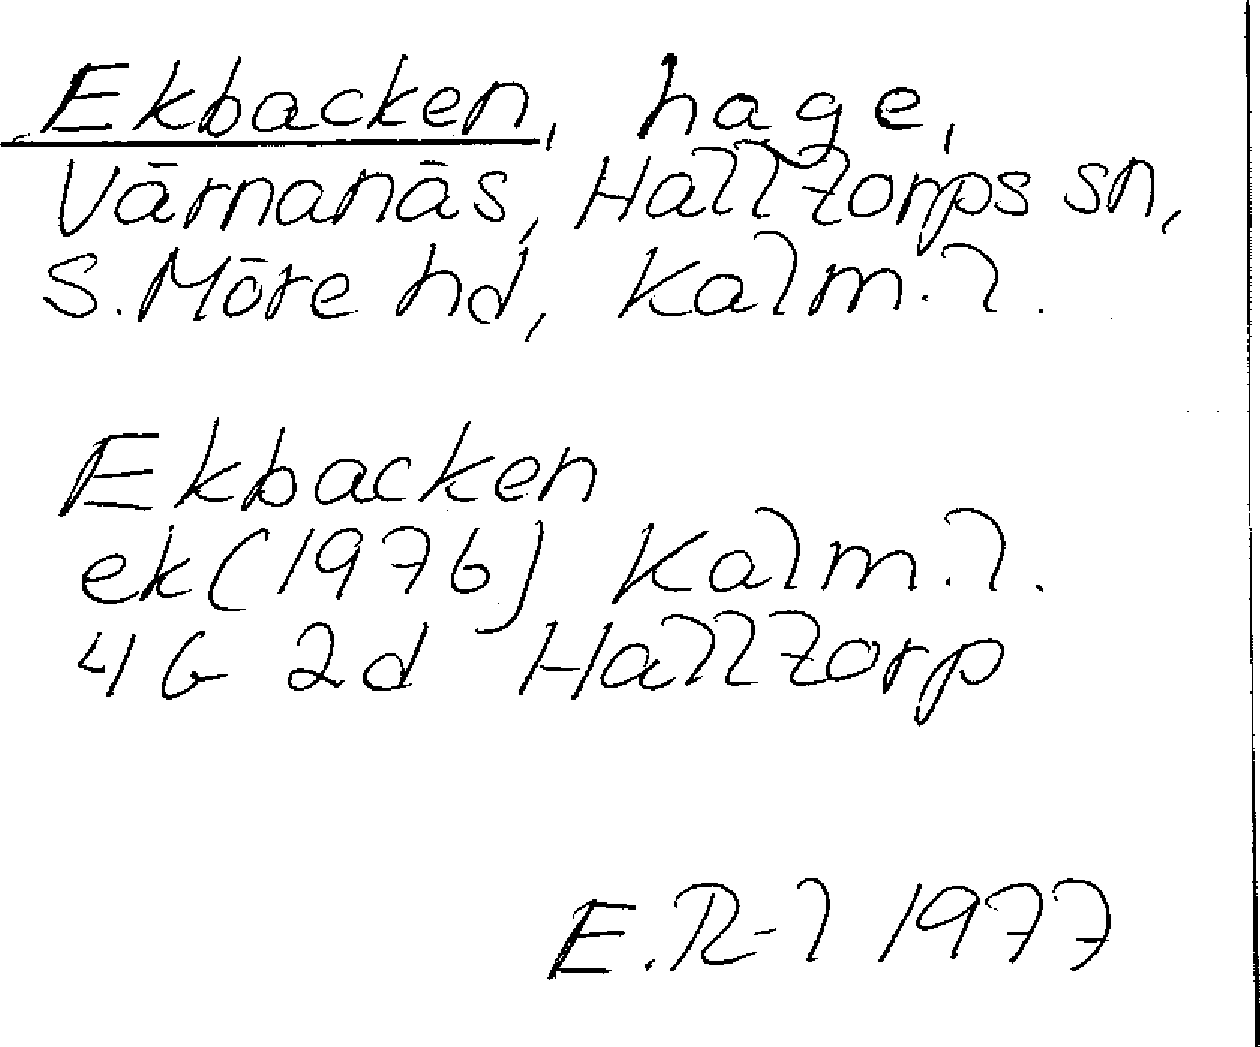 Ekbacken, hage,
Värnanäs, Halltorps sn,
S. Möre hd, Kalm. l.
Ekbacken
ek (1976) Kalm. l.
4G 2d Halltorp
E. R-l 1977